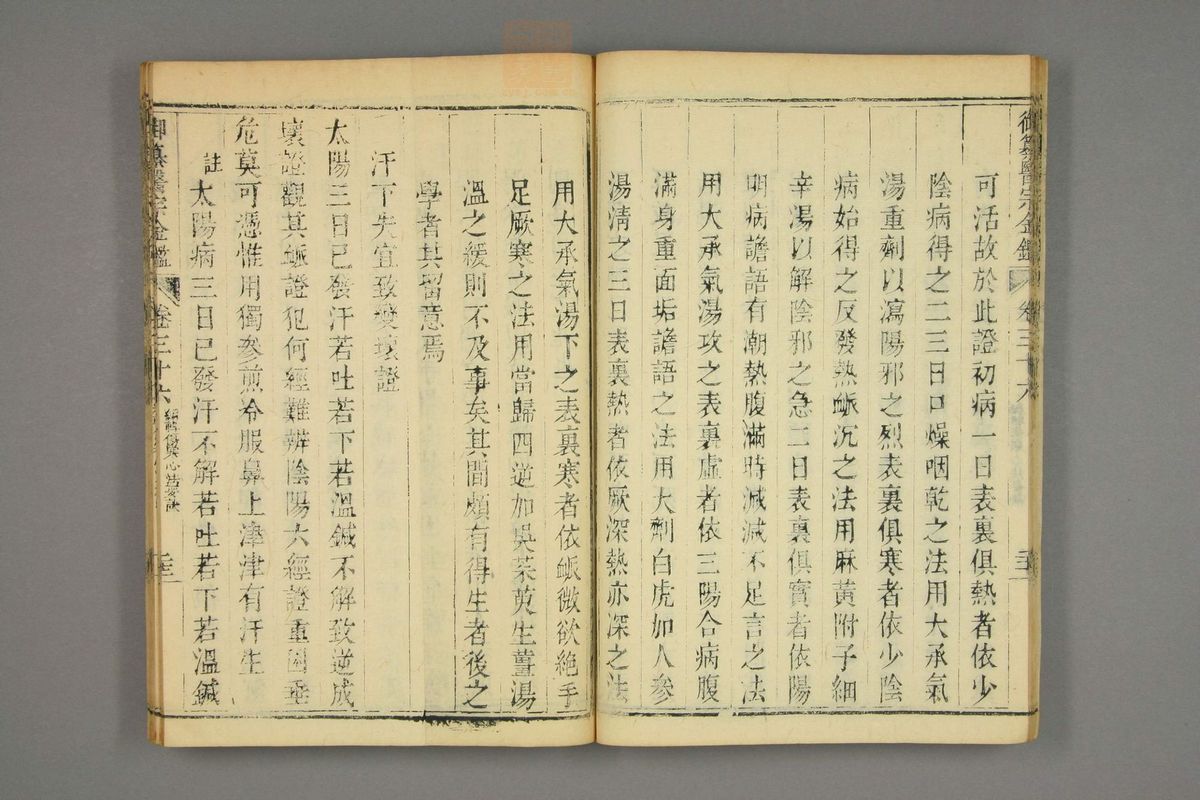 御纂醫宗金鑑 卷三十六
可活故於此證初病一日表裏俱熱者依少
陰病得之二三日口燥咽乾之法用大承氣
湯重劑以瀉陽邪之烈表裏俱寒者依少陰
病始得之反發熱脈沉之法用麻黃附子細
辛湯以解陰邪之急二日表裏俱實者依陽
明病譫語有潮熱腹滿時減減不足言之法
用大承氣湯攻之表裏虛者依三陽合病腹
滿身重面垢譫語之法用大劑白虎加人參
湯淸之三日表裏熱者依厥深熱亦深之法
用大承氣湯下之表裏寒者依脈微欲絶手
足厥寒之法用當歸四逆加吳茱萸生薑湯
溫之緩則不及事矣其間頗有得生者後之
學者其留意焉
汗下失宜致變壞證
太陽三日已發汗若吐若下若溫鍼不解致逆成
壞證觀其脈證犯何經難辨陰陽六經證重困垂
危莫可憑惟用獨參煎冷服鼻上津津有汗生
註太陽病三日已發汗不解若吐若下若溫鍼
御纂醫宗金鑑 卷三十六